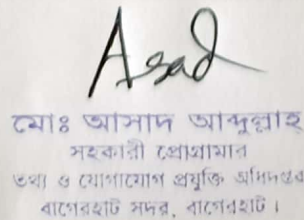 Asad
মোঃ আসাদ আব্দুল্লাহ
সহকারী প্রোগ্রামার
তথ্য ও যোগাযোগ প্রযুক্তি অধিদপ্তর
বাগেরহাট সদর, বাগেরহাট।